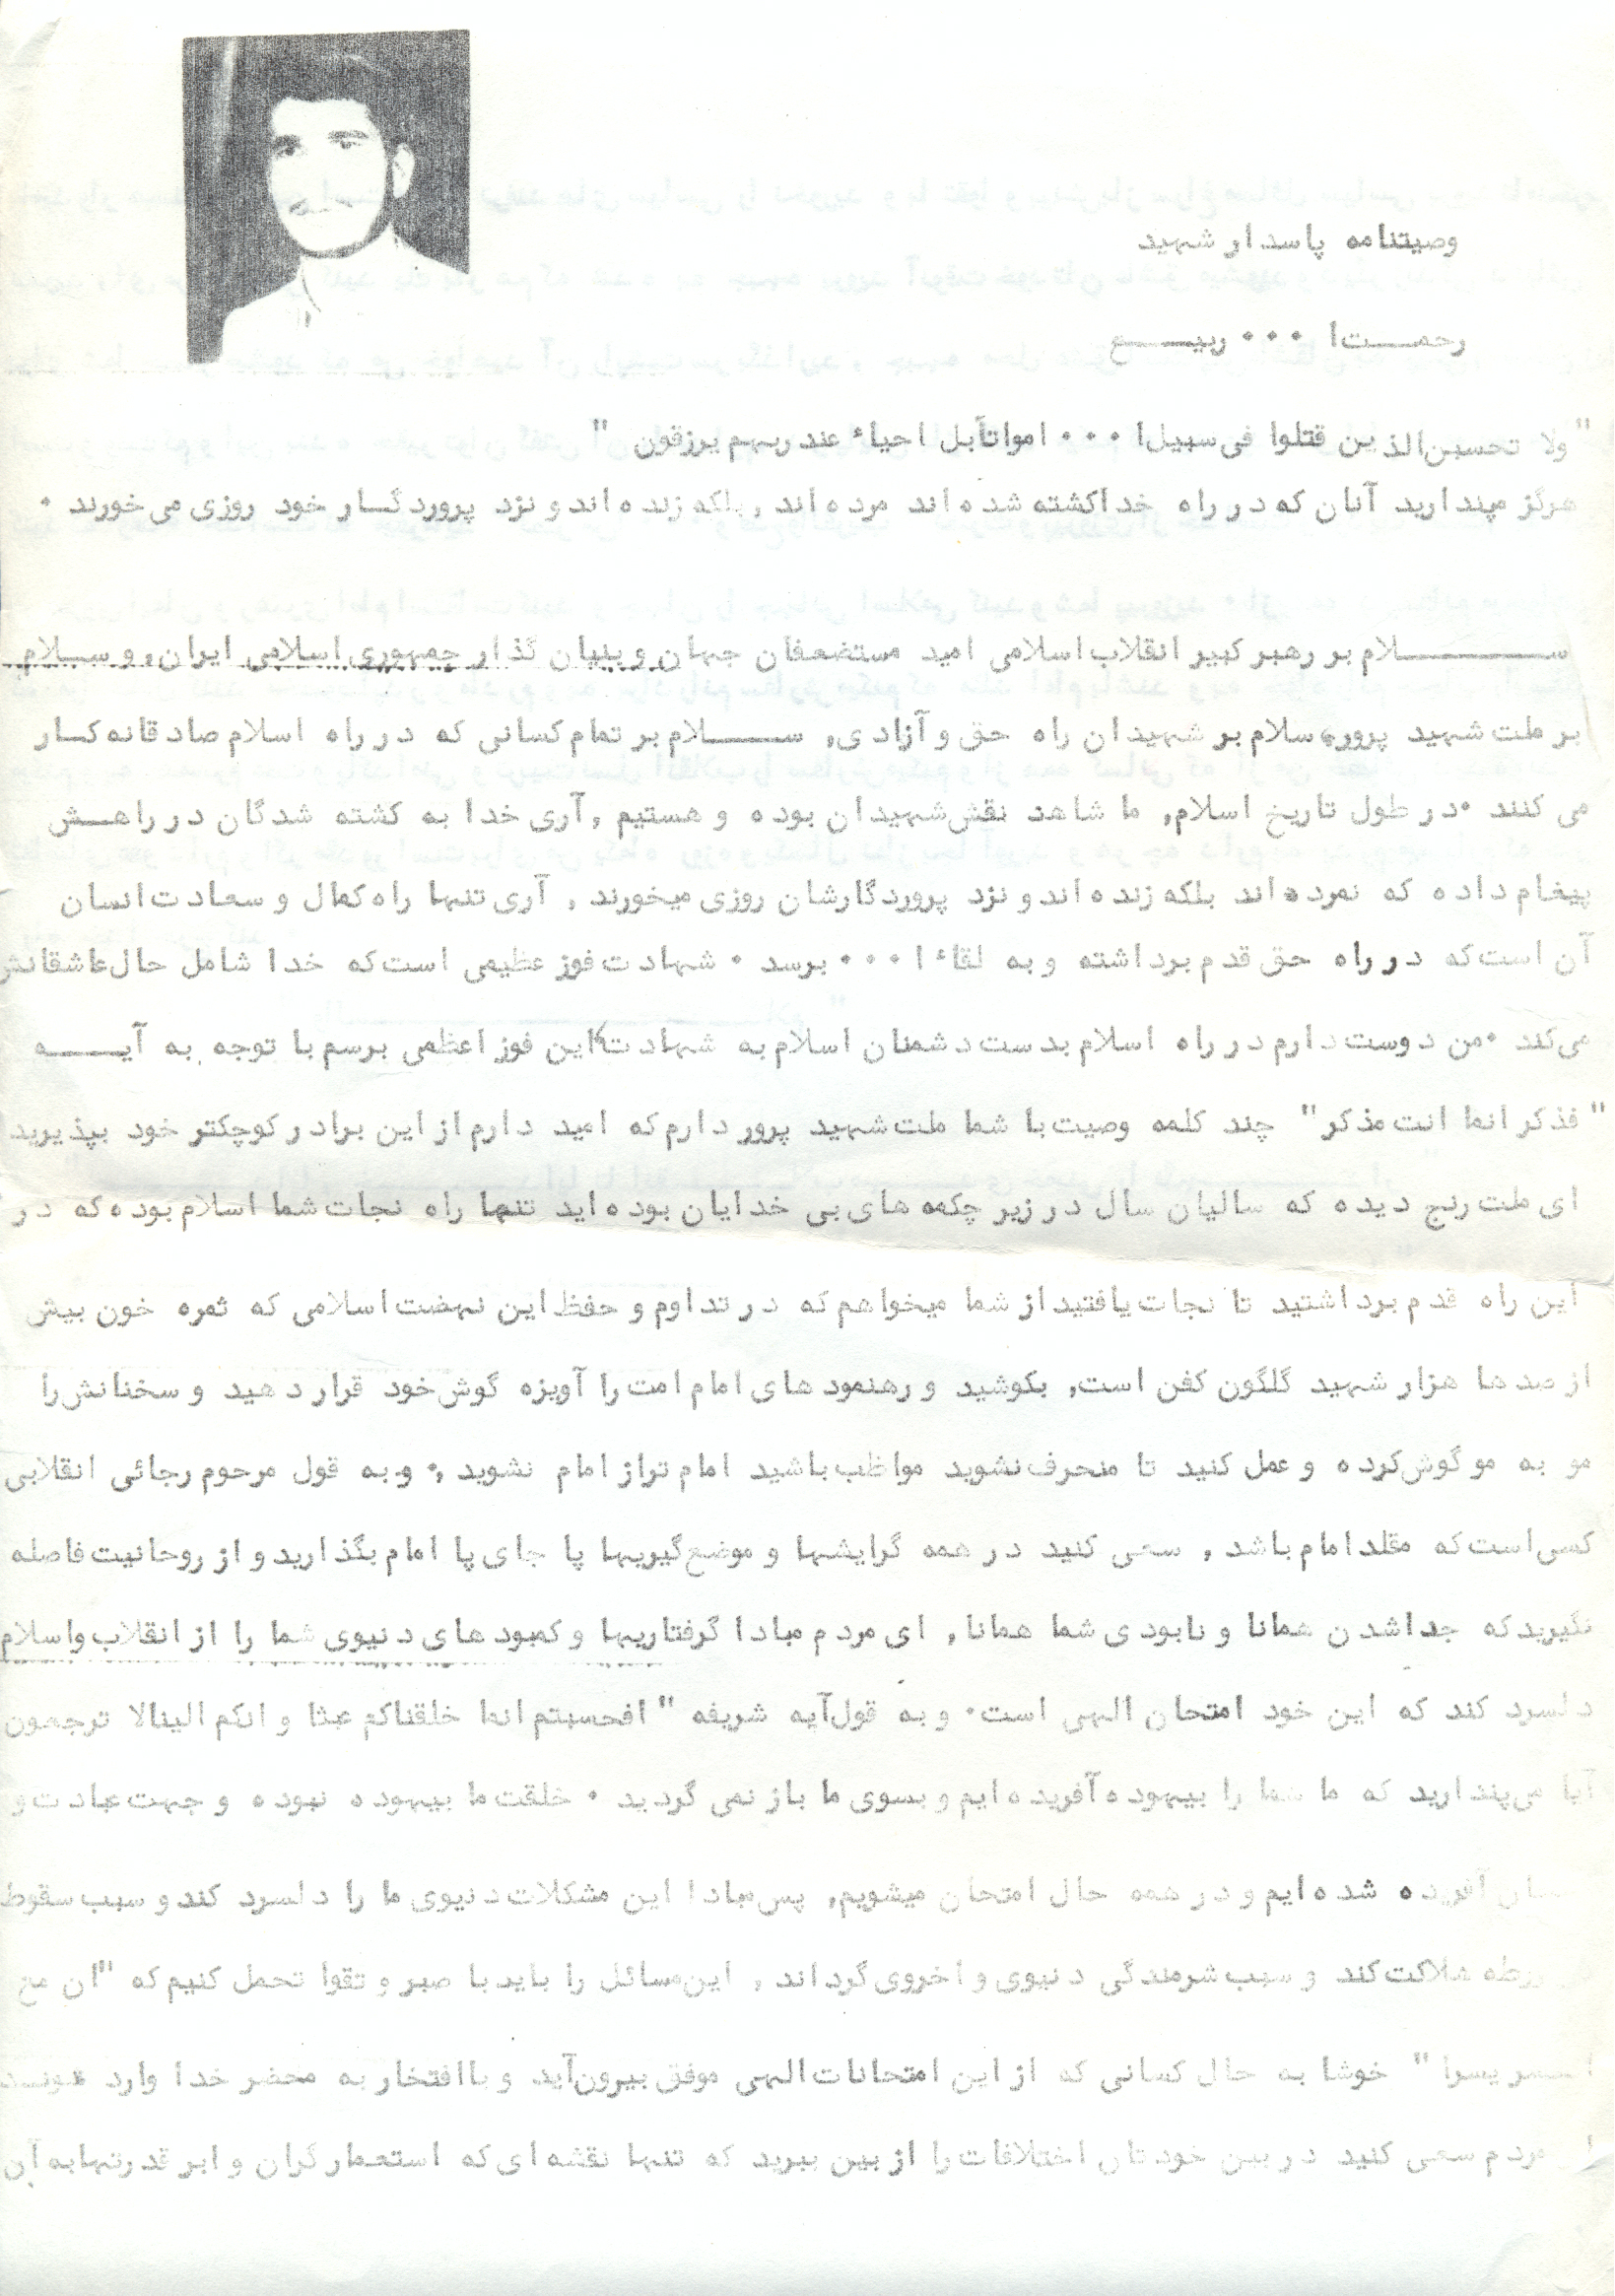 وصیتنامه پاسدار شهید
رحمت‌ا ... ربیع
"ولا تحسبن‌الذین قتلوا فی‌سبیل‌ا ... امواتآبل احیاء عند ربهم یرزقون "
هرگز مپندارید آنان که در راه خداکشته شده‌اند مرده‌اند , بلکه زنده‌اند و نزد پروردگار خود روزی می‌خورند .
سلام بر رهبر کبیر انقلاب اسلامی امید مستضعفان جهان و بنیان گذار جمهوری اسلامی ایران, و سلام
بر ملت شهید پرور, سلام بر شهیدان راه حق و آزادی, سلام بر تمام کسانی که در راه اسلام صادقانه کار
می کنند .در طول تاریخ اسلام, ما شاهد نقش شهیدان بوده و هستیم ,آری خدا به کشته شدگان در راهش
پیغام داده که نمرده‌اند بلکه زنده‌اند و نزد پروردگارشان روزی میخورند , آری تنها راه کمال و سعادت انسان
آن است که در راه حق قدم برداشته و به لقاء ا ... برسد . شهادت فوز عظیمی است که خدا شامل حال عاشقانش
می‌کند .من دوست دارم در راه اسلام بدست دشمنان اسلام به شهادت این فوز اعظمی برسم با توجه به آیه
" فذکر انما انت مذکر" چند کلمه وصیت با شما ملت شهید پرور دارم که امید دارم از این برادر کوچکتر خود بپذیرید
ای ملت رنج دیده که سالیان سال در زیر چکمه های بی خدایان بوده‌اید تنها راه نجات شما اسلام بوده که در
این راه قدم برداشتید تا نجات یافتید از شما میخواهم که در تداوم و حفظ این نهضت اسلامی که ثمره خون بیش
از صدها هزار شهید گلگون کفن است, بکوشید و رهنمودهای امام امت را آویزه گوش خود قرار دهید و سخنانش را
مو به مو گوش کرده و عمل کنید تا منحرف نشوید مواظب باشید امام تر از امام نشوید ,. و به قول مرحوم رجائی انقلابی
کسی است که مقلد امام باشد , سعی کنید در همه گرایشها و موضع گیریها پا جای پا امام بگذارید و از روحانیت فاصله
نگیرید که جدا شدن همانا و نابودی شما همانا, ای مردم مبادا گرفتاریها و کمبودهای دنیوی شما را از انقلاب واسلام
دلسرد کند که این خود امتحان الهی است. و به قول آیه شریفه " افحسبتم انما خلقناکم عبثا و انکم الینالا ترجعون
آیا می‌پندارید که ما شما را بیهوده آفریده‌ایم و بسوی ما باز نمی گردید . خلقت ما بیهوده نبوده و جهت عبادت و
آفریده شده‌ایم و در همه حال امتحان میشویم, پس مبادا این مشکلات دنیوی ما را دلسرد کند و سبب سقوط
ورطه هلاکت کند و سبب شرمندگی دنیوی و اخروی گرداند , این مسائل را باید با صبر و تقوا تحمل کنیم که "ان مع
العسر یسرا " خوشا به حال کسانی که از این امتحانات الهی موفق بیرون آید و باافتخار به محضر خدا وارد شوند
مردم سعی کنید در بین خودتان اختلافات را از بین ببرید که تنها نقشه‌ای که استعمارگران و ابر قدرتها به آن